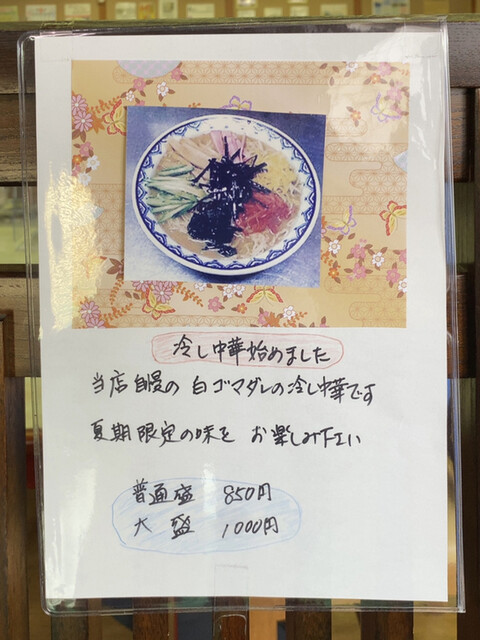 冷し中華始めました
当店自慢の 白ゴマダレの冷し中華です
夏期限定の味を お楽しみ下さい
普通盛 850円
大盛 1000円